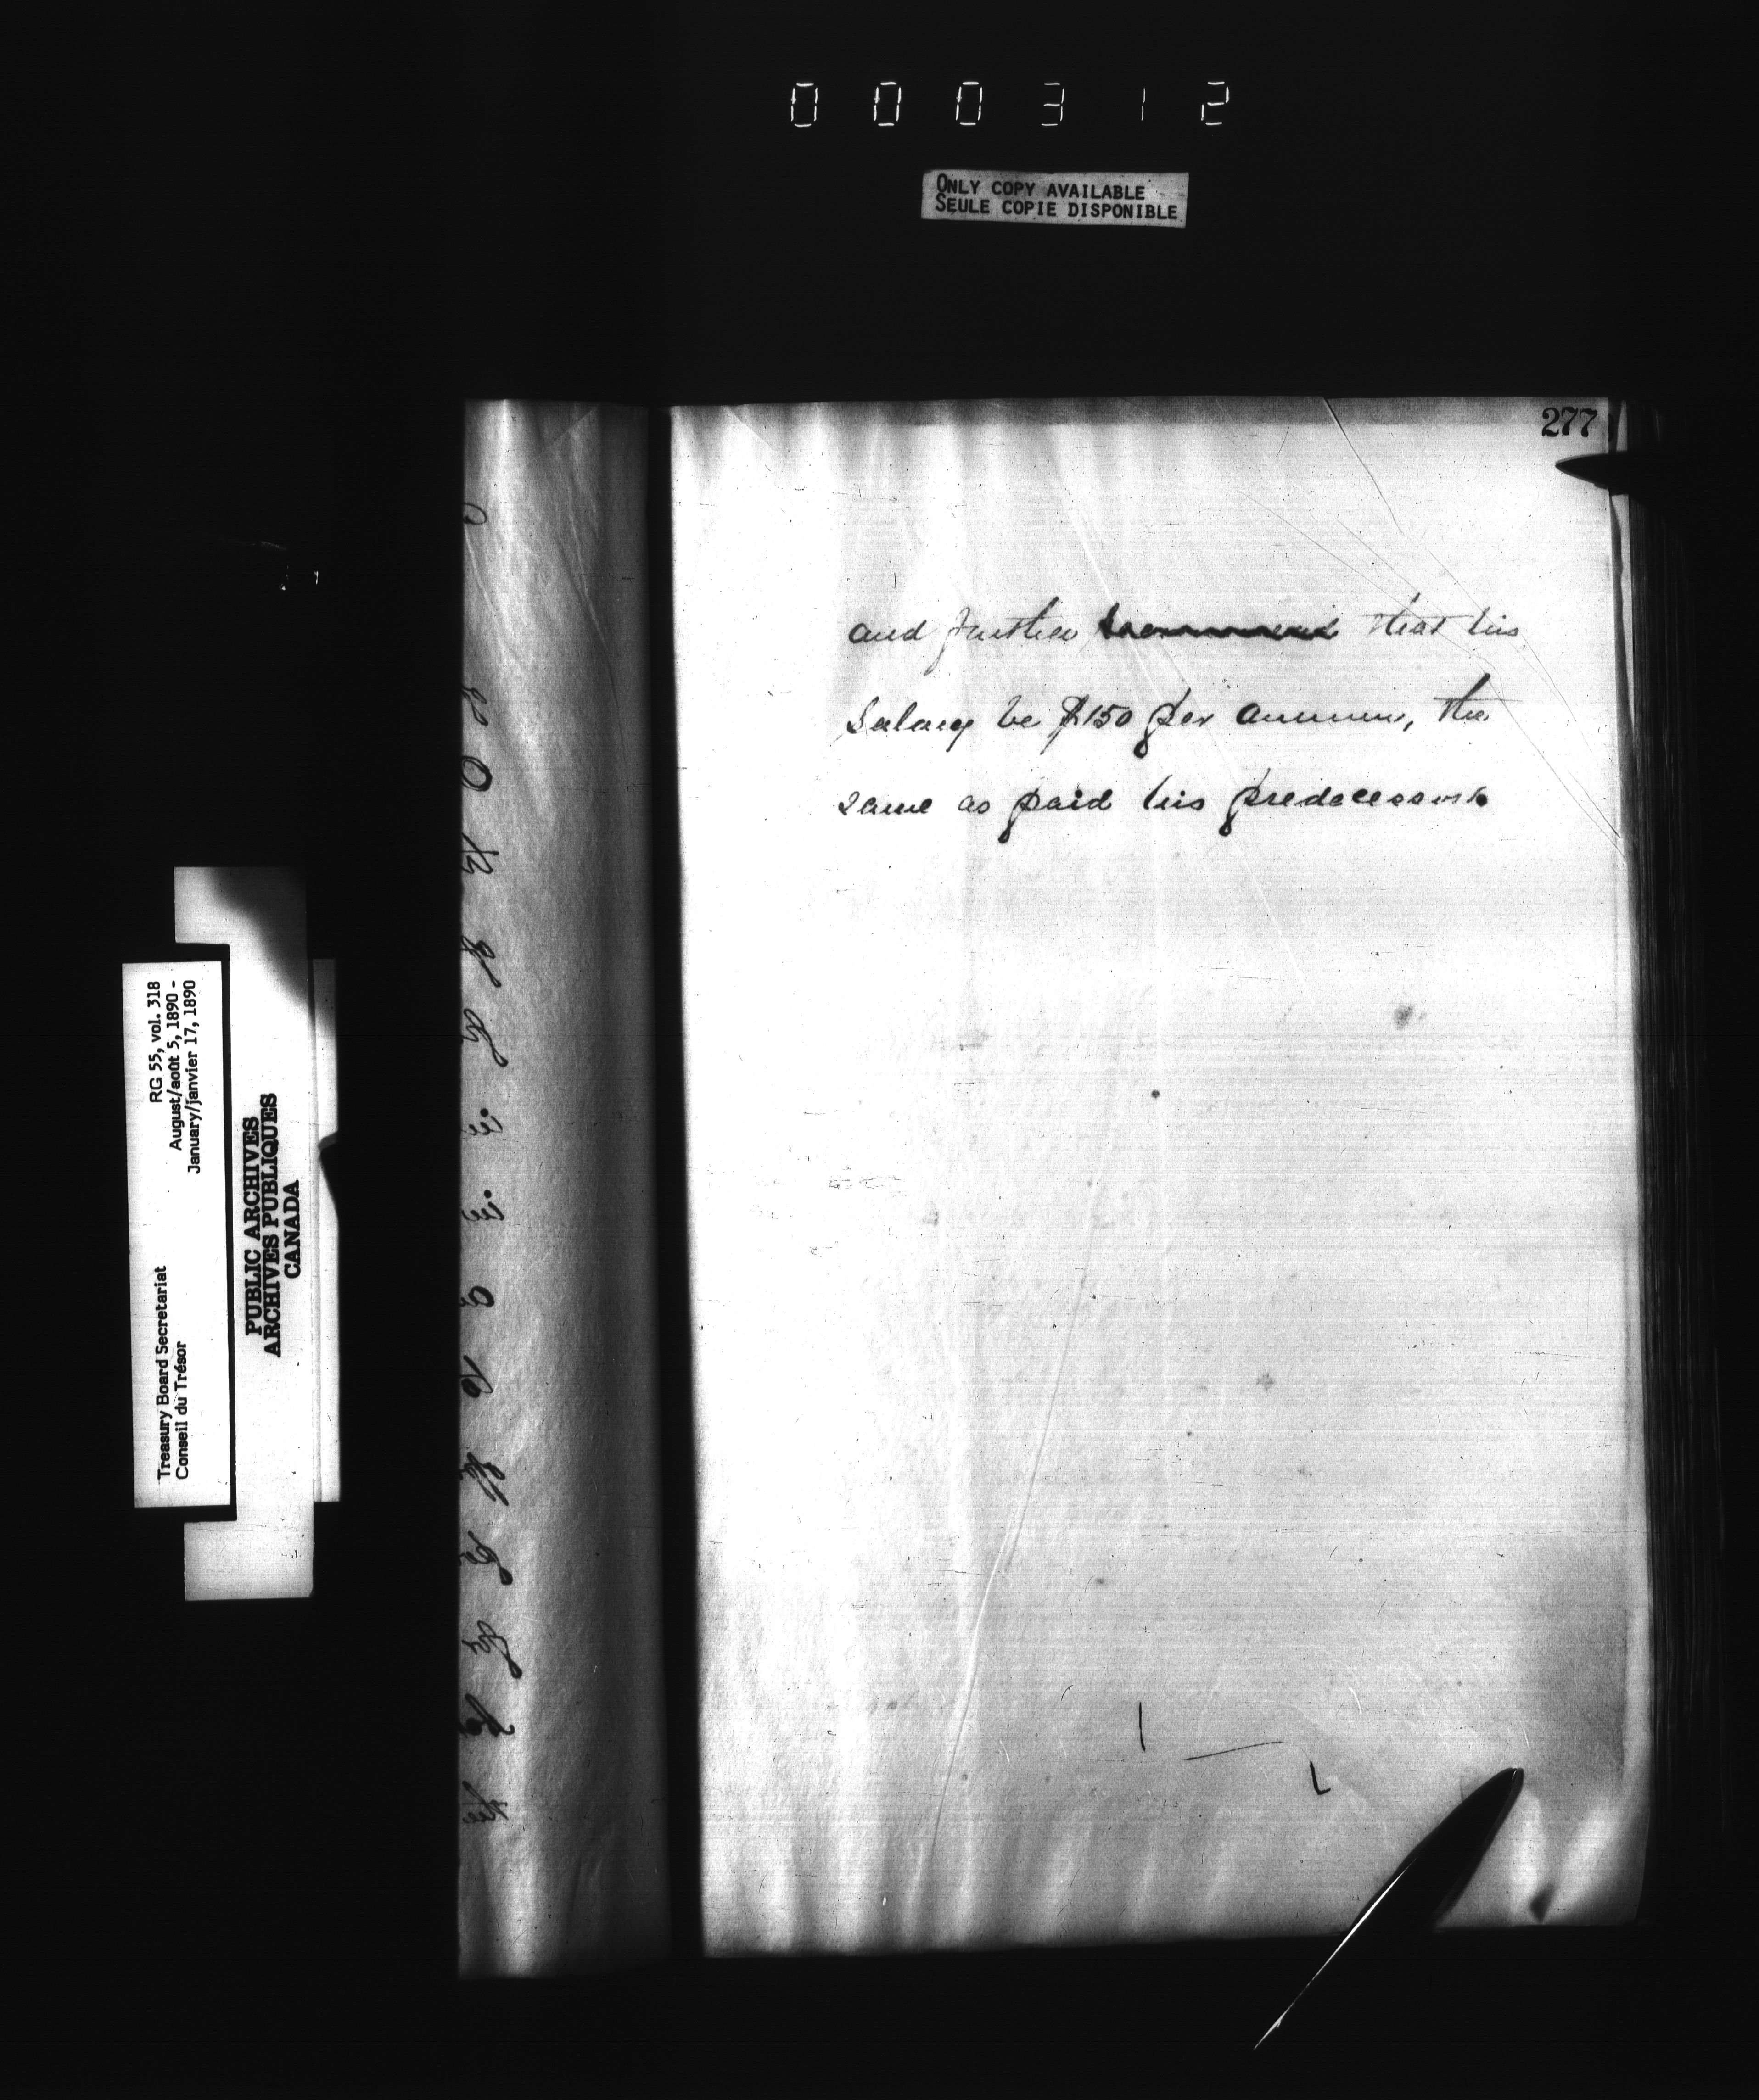 000312
ONLY COPY AVAILABLE
SEULE COPIE DISPONIBLE
277
and further that his
salary be $150 per annum, the
same as paid his predecessor
RG 55, vol. 318
August/août 5, 1890 -
January/janvier 17, 1890
Treasury Board Secretariat
Conseil du Trésor
PUBLIC ARCHIVES
ARCHIVES PUBLIQUES
CANADA